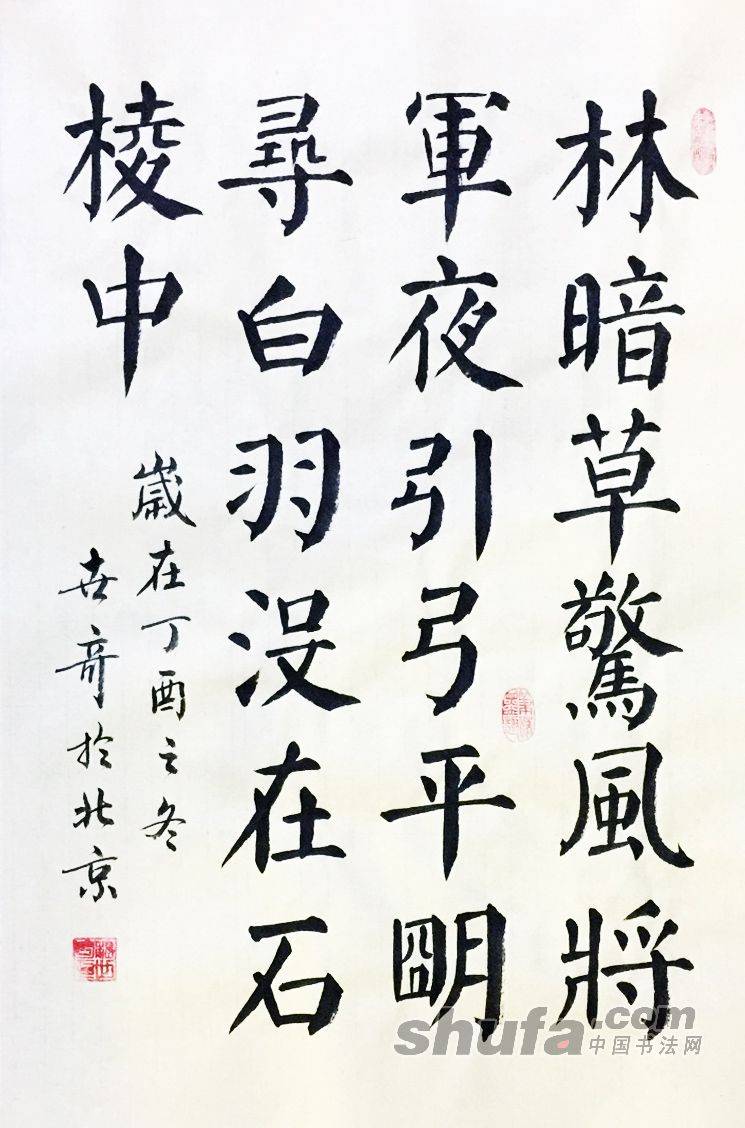 林暗草驚風將
軍夜引弓平明
尋白羽沒在石
棱中
歲在丁酉之冬
世奇於北京
shufa.com
中国书法网